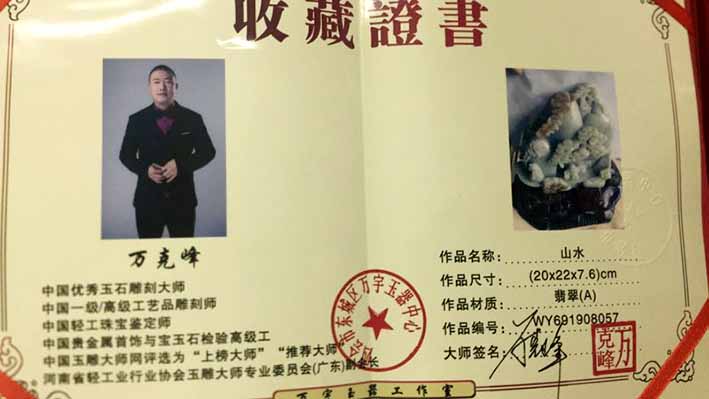 收藏證書
万克峰
中国优秀玉石雕刻大师
中国一级/高级工艺品雕刻师
中国轻工珠宝鉴定师
中国贵金属首饰与宝玉石检验高级工
中国玉雕大师网评选为“上榜大师”“推荐大师”
河南省轻工业行业协会玉雕大师专业委员会(广东)副会长
会市东城区万字玉器中心
作品名称: 山水
作品尺寸: (20x22x7.6)cm
作品材质: 翡翠(A)
作品编号: WY691908057
大师签名:
万克峰
万字玉器工作室